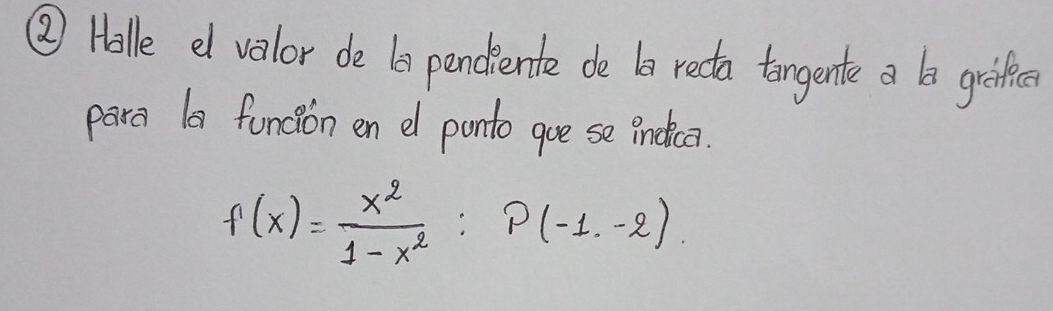 ② Halle el valor de la pendiente de la recta tangente a la gráfica
para la función en el punto que se indica.
f(x) = x²/(1 - x²) : P(-1. -2).